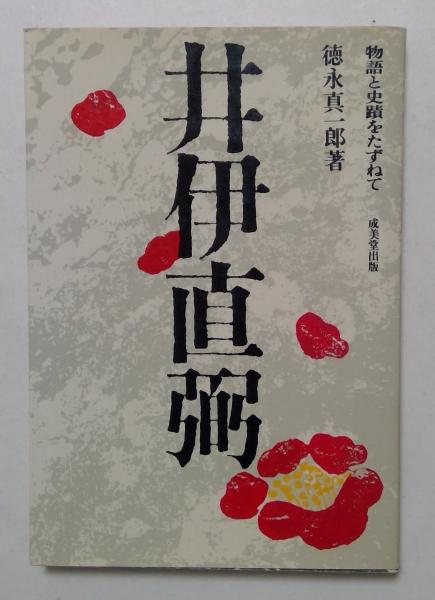 物語と史蹟をたずねて
成美堂出版
徳永真一郎著
井伊直弼